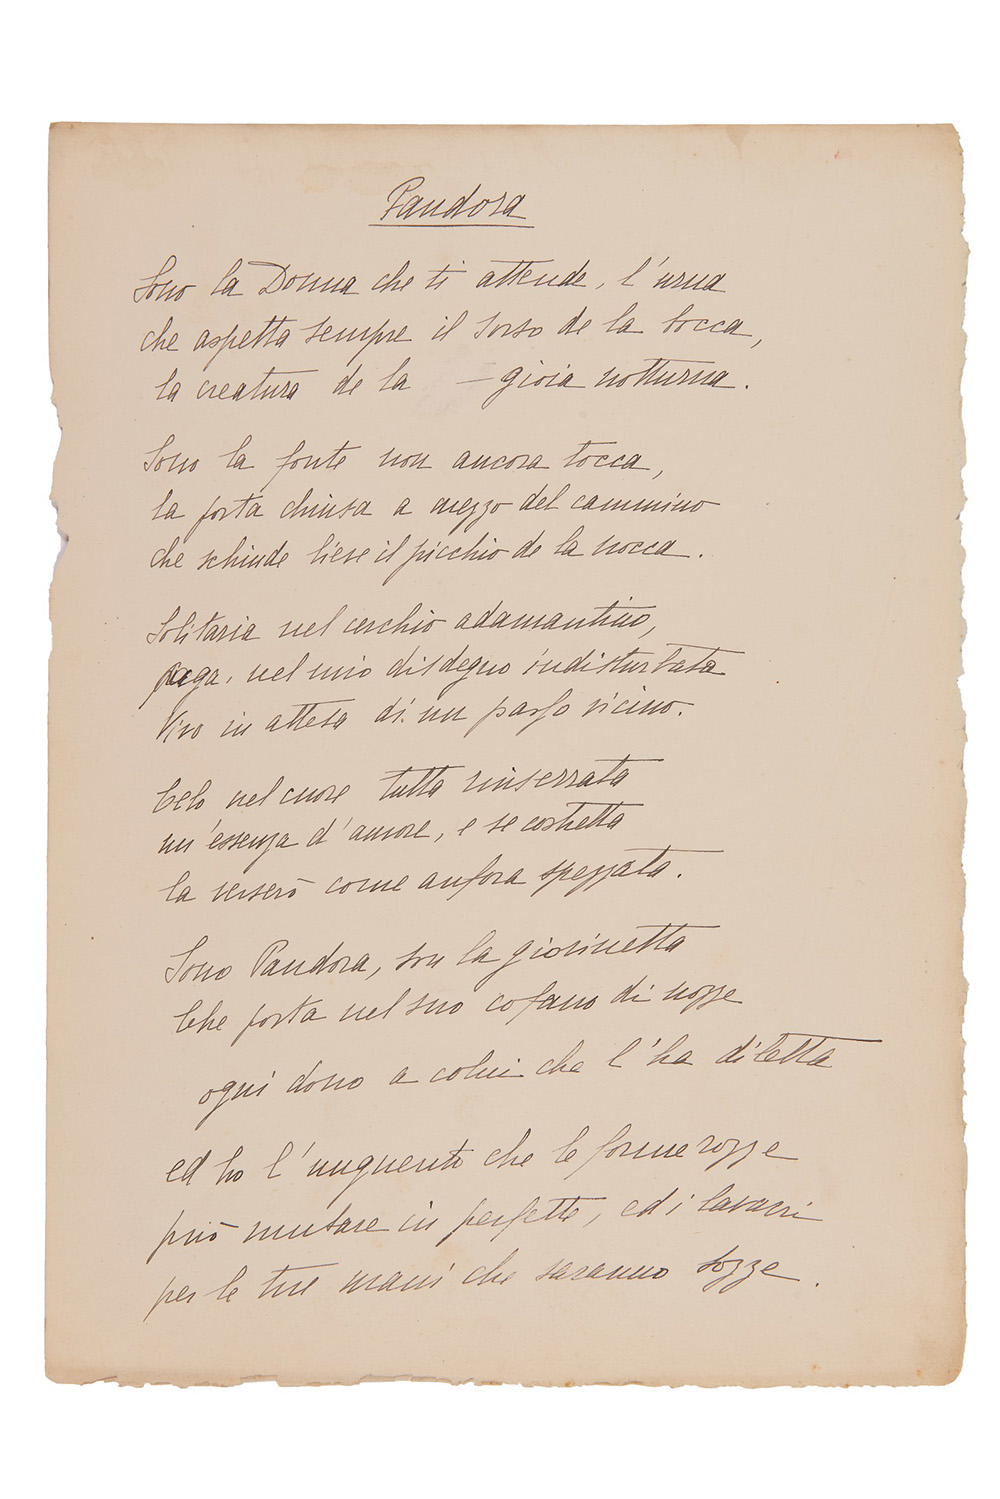 Pandora
Sono la Donna che ti attende, l'urna
che aspetta sempre il sorso de la bocca,
la creatura de la – gioia notturna.
Sono la fonte non ancora tocca,
la porta chiusa a mezzo del cammino
che schiude lieve il picchio de la nocca.
Solitaria nel cerchio adamantino,
paga, nel mio disdegno indisturbata
Vivo in attesa di un passo vicino.
Celo nel cuore tutta rinserrata
un'essenza d'amore, e se costretta
la verserò come anfora spezzata.
Sono Pandora, son la giovinetta
Che porta nel suo cofano di nozze
ogni dono a colui che l'ha diletta
ed ho l'unguento che le forme rozze
può mutare in perfette, ed i lavacri
per le tue mani che saranno sozze.